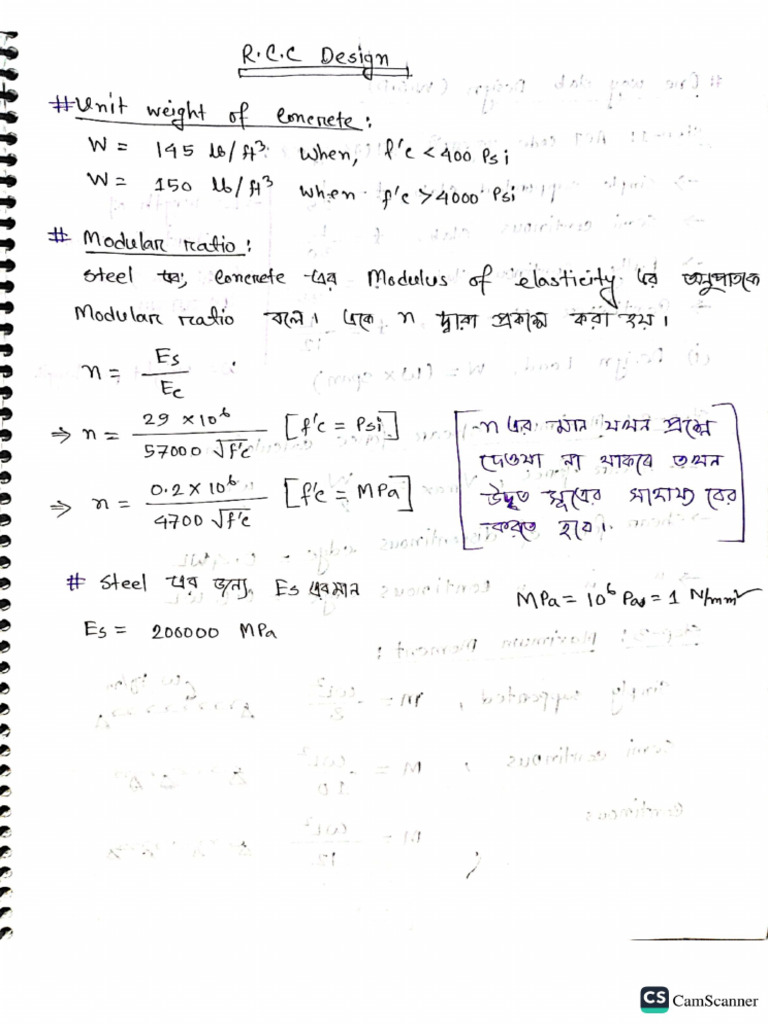 R.C.C Design
# Unit weight of concrete:
W = 145 lb/ft³ when, f'c < 400 Psi
W = 150 lb/ft³ when f'c > 4000 Psi
# Modular ratio:
Steel concrete এর Modulus of elasticity এর অনুপাতকে
Modular ratio বলে। একে n দ্বারা প্রকাশ করা হয়।
n = Es / Ec
⇒ n = 29 × 10⁶ / 57000 √f'c [f'c = Psi]
⇒ n = 0.2 × 10⁶ / 4700 √f'c [f'c = MPa]
[n এর মান যখন প্রশ্নে
দেওয়া না থাকবে তখন
উদ্ধৃত সূত্রের সাহায্যে বের
করতে হবে।]
# Steel এর জন্য, Es এর মান
MPa = 10⁶ Pa = 1 N/mm²
Es = 200000 MPa
CS CamScanner